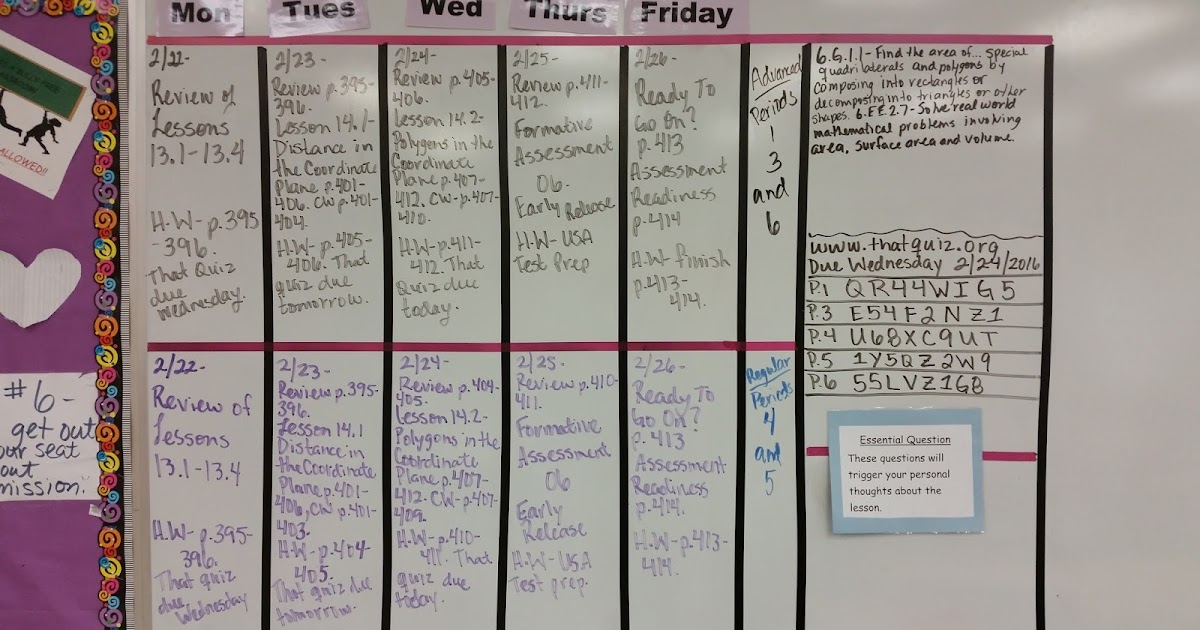 Mon
Tues
Wed
Thurs
Friday
ALLOWED!!
#6-
get out
our seat
out
mission.
2/22-
Review of
Lessons
13.1-13.4
H.W-p.395
-396.
That Quiz
due
Wednesday.
2/23-
Review p.395-
396.
Lesson 14.1-
Distance in
the Coordinate
Plane p.401-
406. CW p.401-
404.
H.W-p.405-
406. That
quiz due
tomorrow.
2/24-
Review p.405-
406.
Lesson 14.2-
Polygons in the
Coordinate
Plane p.407-
412. CW-p.407-
410.
H.W-p.411-
412. That
Quiz due
today.
2/25-
Review p.411-
412.
Formative
Assessment
06.
Early Release
H.W-USA
Test Prep
2/26-
Ready To
Go On?
p.413
Assessment
Readiness
p.414
H.W-finish
p.413-
414.
Advanced
Periods
1
3
and
6
6.G.1.1- Find the area of... special
quadrilaterals and polygons by
composing into rectangles or
decomposing into triangles or other
shapes. 6.EE.2.7-Solve real world
mathematical problems involving
area, surface area and volume.
www.thatquiz.org
Due Wednesday 2/24/2016
P.1 QR44WIG5
P.3 E54F2NZ1
P.4 U68XC9UT
P.5 1Y5QZ2W9
P.6 55LVZ1G8
2/22-
Review of
Lessons
13.1-13.4
H.W-p.395-
396.
That quiz
due
Wednesday
2/23-
Review p.395-
396.
Lesson 14.1
Distance in
the Coordinate
Plane p.401-
406, CW p.401-
403.
H.W-p.404-
405.
That quiz due
tomorrow.
2/24-
Review p.404-
405.
Lesson 14.2-
Polygons in the
Coordinate
Plane p.407-
412. CW-p.407-
409.
H.W-p.410-
411. That
quiz due
today.
2/25-
Review p.410-
411.
Formative
Assessment
06
Early
Release
H.W-USA
Test prep.
2/26-
Ready To
Go On?
p.413
Assessment
Readiness
p.414.
H.W-p.413-
414.
Regular
Periods
4
and
5
Essential Question
These questions will
trigger your personal
thoughts about the
lesson.